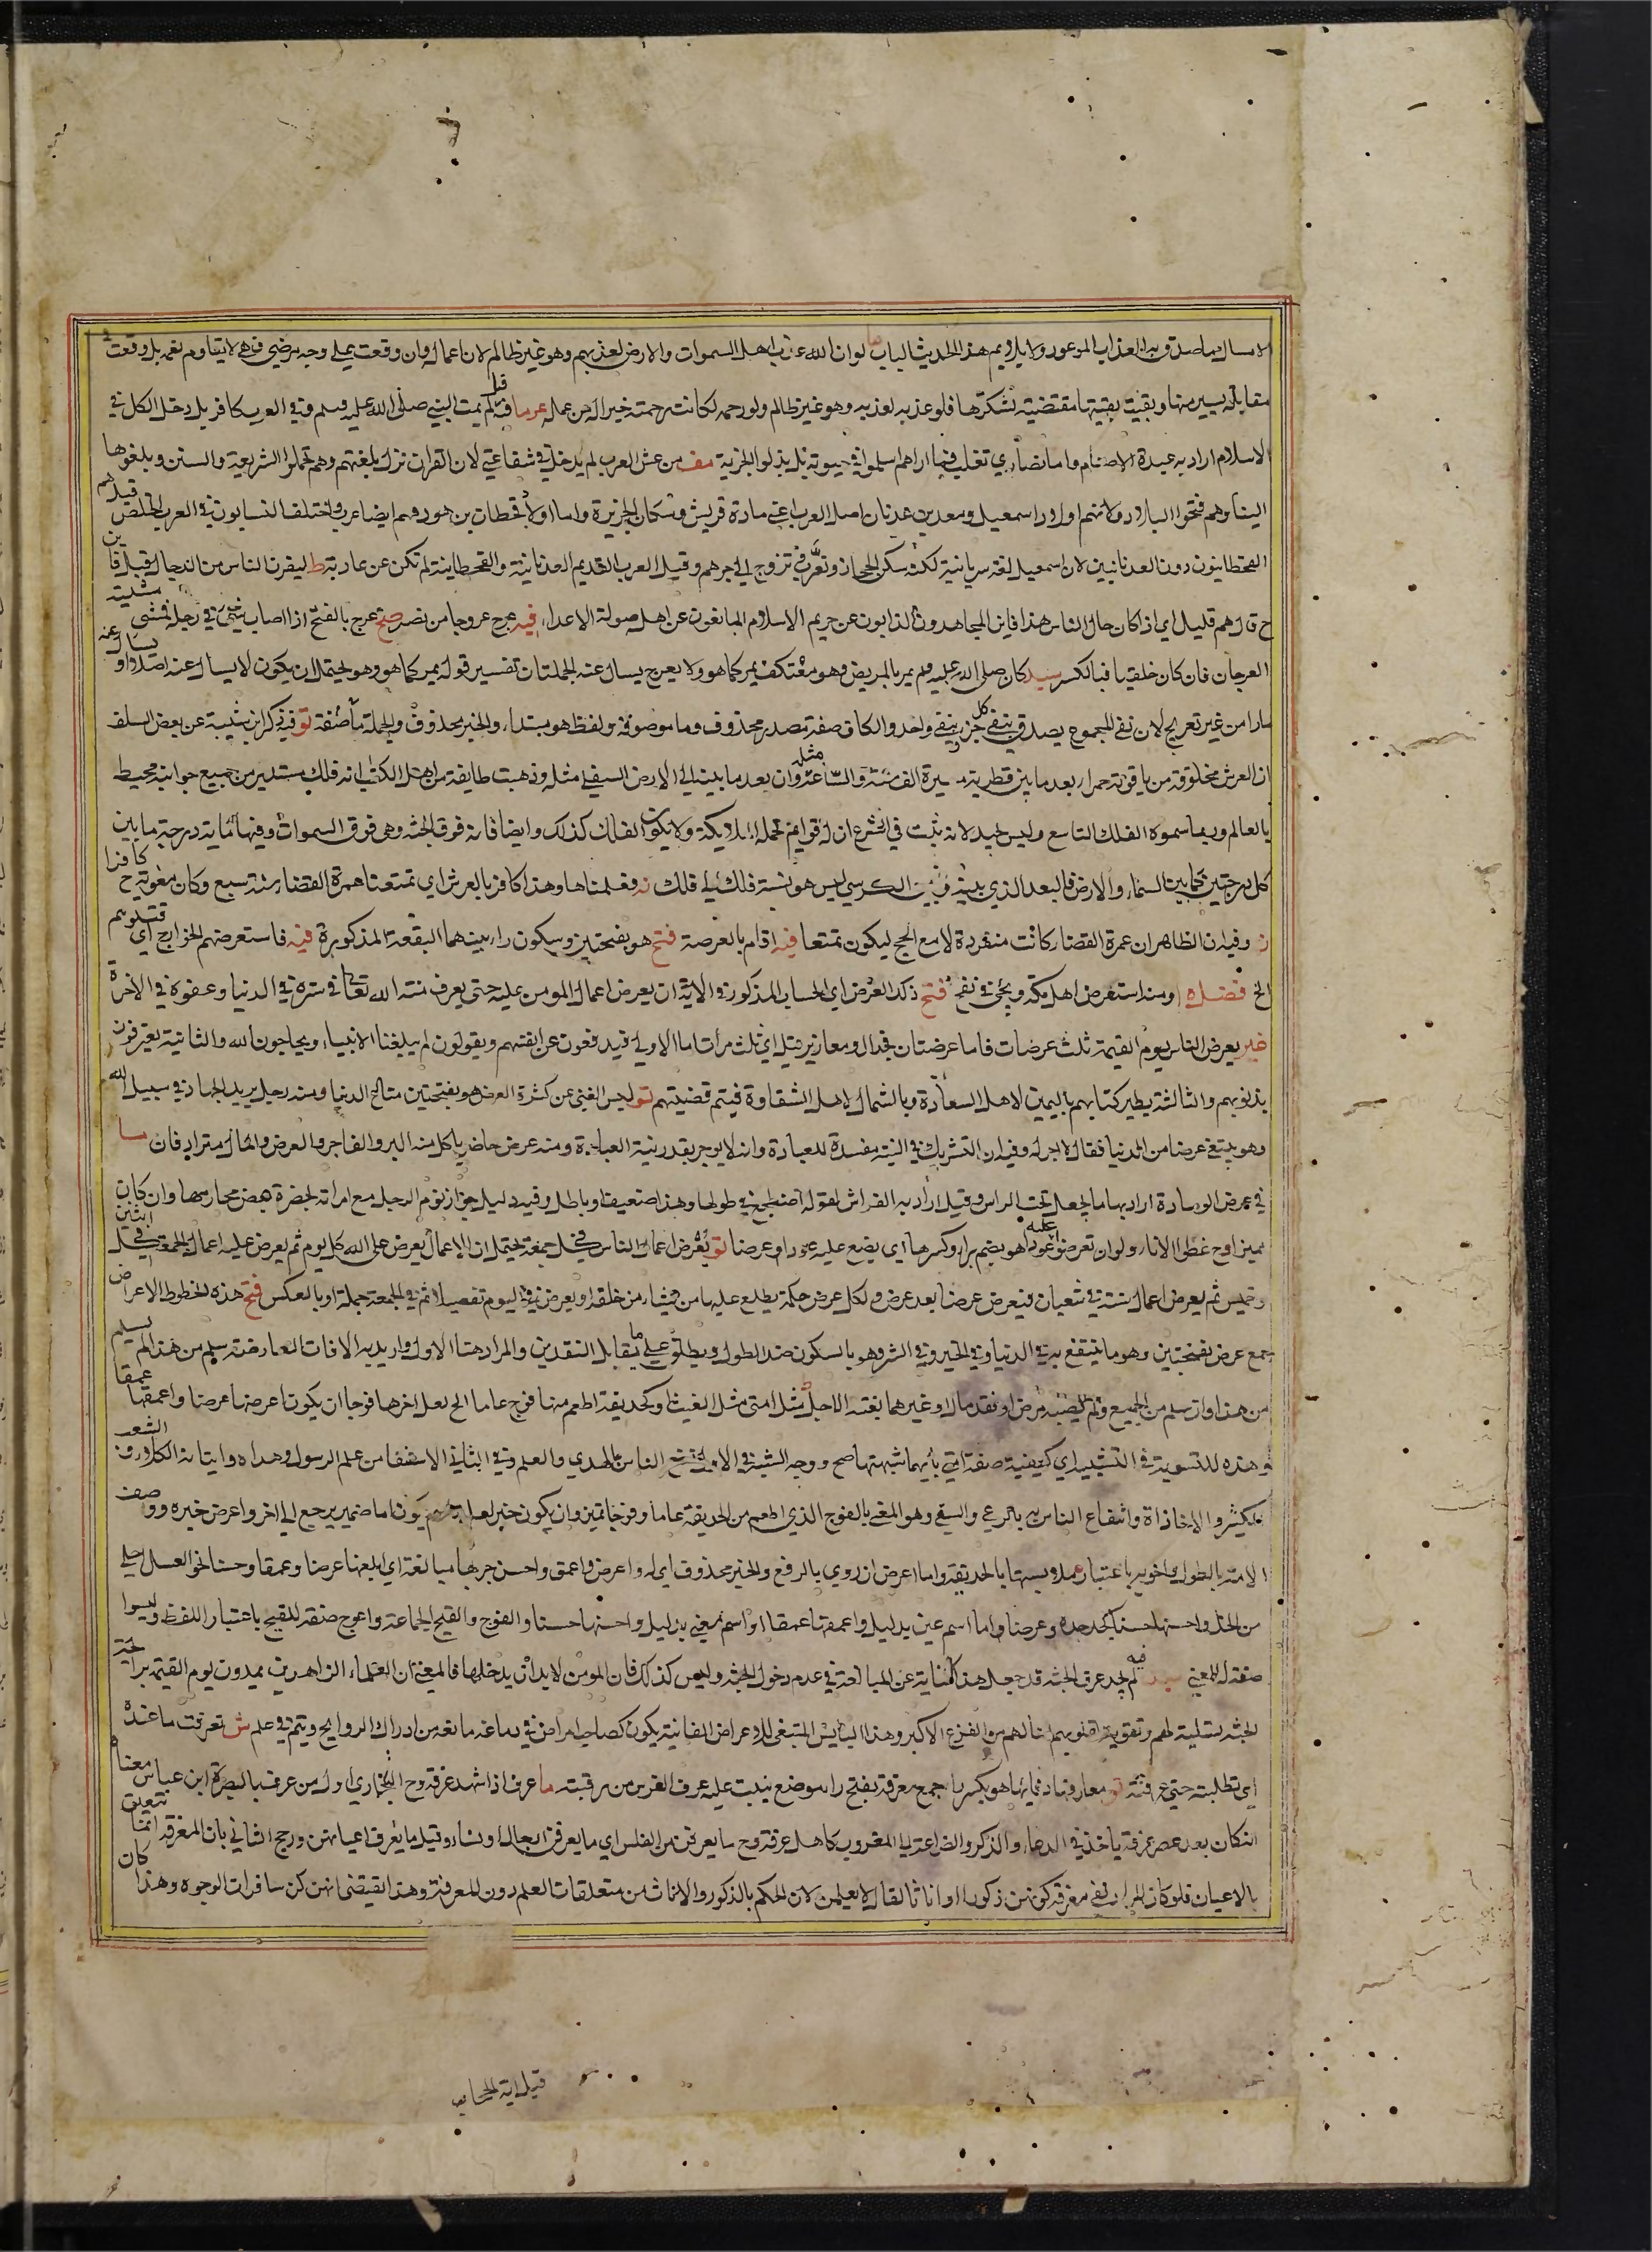 لوان الله عذب اهل السموات والارض لعذبهم وهو غير ظالم لان اعماله وان وقعت على وجه مرضي فهي لا تقاوم نعمه بل وقعت في
مقابلة يسير منها وبقيت بقيتها مقتضية لشكرها فلو عذبه لعذبه وهو غير ظالم ولو رحمه لكانت رحمته خيرا له من عمله لم يمت النبي صلى الله عليه وسلم وفي العرب كافر بل دخل الكل في
الاسلام اراد به عبدة الاصنام واما نصارى تغلب فما اراهم اسلموا في حيوته بل بذلوا الجزية مف من غش العرب لم يدخل في شفاعتي لان القران نزل بلغتهم وهم تحملوا الشريعة والسنن وبلغوها
الينا وهم فتحوا البلاد ولانهم اولاد اسمعيل ومعد بن عدنان اصل العرب اعني مادة قريش وسكان الجزيرة واما اولاد قحطان بن هود فهم ايضا عرب واختلف النسابون في العرب الخلص قيل هم
القحطانيون دون العدنانيين لان اسمعيل لغته سريانية لكنه سكن الحجاز وتعرب في تزوج الى جرهم وقيل العرب القديم العدنانية والقحطانية لم تكن عن عاربة ط ليفرن الناس من الدجال قيل فاين
ح قال هم قليل اي اذا كان حال الناس هذا فاين المجاهدون الذابون عن حريم الاسلام المانعون عن اهله صولة الاعداء فيه عرج عروجا من نصر صح عرج بالفتح اذا اصاب شيء في رجله فمشى مشية
العرجان فان كان خلقيا فبالكسر سيد كان صلى الله عليه وسلم يمر بالمريض وهو معتكف يمر كما هو ولا يعرج يسال عنه الجملتان تفسير قوله يمر كما هو وهو يحتمل ان يكون لا يسال عنه اصلا او يسال عنه
مارا من غير تعريج لان نفي المجموع يصدق بنفي كل جزء وبنفي واحد والكاف صفة مصدر محذوف وما موصوفة ولفظ هو مبتدا والخبر محذوف والجملة صفة تو فيه ذكر ابن ابي شيبة عن بعض السلف
ان العرش مخلوقة من ياقوتة حمراء بعد ما بين قطريه مسيرة الف سنة واتساعه مثله وان بعد ما بينه الى الارض السفلى مثله وذهبت طايفة من اهل الكتب انه فلك مستدير من جميع جوانبه محيط
بالعالم وربما سموه الفلك التاسع وليس بجيد لانه ثبت في الشرع ان له قوائم تحمله الملايكة ولا يكون الفلك كذلك وايضا فانه فوق الجنة وهي فوق السموات وفيها مائة درجة ما بين
كل درجتين كما بين السماء والارض فالبعد الذي بينه وبين الكرسي ليس هو نسبة فلك الى فلك نه فعلناها وهذا كافر بالعرش اي تمتعنا عمرة القضاء سنة سبع وكان معوية ح كافرا
ن وفيه ان الظاهر ان عمرة القضاء كانت منفردة لا مع الحج ليكون تمتعا فيه اقام بالعرصة فتح هو بفتحتين وسكون راء بينهما البقعة المذكورة فيه فاستعرضهم الخوارج اي قتلوهم
الخ فضله ومنه استعرض اهل مكة ويجيء في نفح فتح ذلك العرض اي الحساب المذكور في الاية ان يعرض اعمال المومن عليه حتى يعرف منة الله تعالى في سترها في الدنيا وعفوه في الاخرة
غير يعرض الناس يوم القيمة ثلث عرضات فاما عرضتان فجدال ومعاذير قيل اي ثلث مرات اما الاولى فيدفعون عن انفسهم ويقولون لم يبلغنا الانبياء ويحاجون الله والثانية يعترفون
بذنوبهم والثالثة يطير كتابهم باليمين لاهل السعادة وبالشمال لاهل الشقاوة فيتم قضيتهم تو ليس الغنى عن كثرة العرض هو بفتحتين متاع الدنيا ومنه رجل يريد الجهاد في سبيل الله
وهو يبتغي عرضا من الدنيا فقال لا اجر له وفيه ان التشريك في النية مفسدة للعبادة وانه لا يوجر بقدر نية العبادة ومنه عرض حاضر ياكل منه البر والفاجر والعرض والمال مترادفان ما
في عرض الوسادة اراد بها ما يجعل تحت الراس وقيل اراد به الفراش لقوله اضطجع في طولها وهذا ضعيف او باطل وفيه دليل جواز نوم الرجل مع امراته بحضرة بعض محارمها وان كان
مميزا وح غطوا الاناء ولو ان تعرضوا عليه عودا هو بضم راء وكسرها اي يضع عليه عودا وعرضا تو يعرض اعمال الناس في كل جمعة يحتمل ان الاعمال يعرض على الله كل يوم ثم يعرض عليه اعمال الجمعة في كل اثنين
وخميس ثم يعرض اعمال سنة في شعبان فيعرض عرضا بعد عرض ولكل عرض حكمة يطلع عليها من يشاء من خلقه او يعرض في اليوم تفصيلا ثم في الجمعة جملة او بالعكس فتح هذه الخطوط الاعراض
جمع عرض بفتحتين وهو ما ينتفع به في الدنيا وفي الخير وفي الشر وهو بالسكون ضد الطول ويطلق على ما يقابل النقدين والمراد هنا الاول واريد به الافات العارضة سلم من هذا لم يسلم
من هذا وان سلم من الجميع ولم يصبه مرض او فقد مال او غيرهما بغته الاجل مثل امتي مثل الغيث او كحديقة اطعم منها فوج عاما الخ لعل اخرها فوجا ان يكون اعرضها عرضا واعمقها عمقا
او هذه للتسوية في التشبيه اي كيفية صفة امتي بايهما شبهتها صح ووجه الشبه في الاول نفع الناس بالهدي والعلم وفي الثاني الاستنفاع من علم الرسول وهداه وانباته الكلا والشعر
الكثير والاخاذاة وانتفاع الناس به بالرعي والسقي وهو المعني بالفوج الذي اطعم من الحديقة عاما وفوجا تميز وان يكون خبر لعل واسم يكون اما ضمير يرجع الى اخر واعرض خبره ووصف
الامة بالطول واخويه باعتبار عمله وبسبها بالحديقة واما اعرض ان روي بالرفع والخبر محذوف اي له واعرض واعمق واحسن جربها مبالغة اي ابلغها عرضا وعمقا وحسنا نحو العسل احلى
من الخل واحسنها حسنا كجد جده وعرضا واما اسم عين بدليل واعمقها عمقا او اسم معنى بدليل واحسنها حسنا والفوج والفيح الجماعة واعوج صفة للفيح باعتبار اللفظ وليسوا
صفة له للمعنى سيد فيه لم يجد عرف الجنة قد جعل هذا كناية عن المباعدة في عدم دخول الجنة وليس كذلك فان المومن لا بد ان يدخلها فالمعنى ان العلماء الزاهدين يمدون يوم القيمة برائحة
الجنة تسلية لهم وتقوية لقلوبهم امنا لهم من الفزع الاكبر وهذا البائس المبتغي للاعراض الفانية يكون كصاحب امراض في دماغه مانعة من ادراك الروايح ويتم في علم ش تعرفت ما عنده
اي تطلبته حتى عرفته تو معارفها دفائها هو بكسر راء جمع معرفة بفتح راء موضع ينبت عليه عرف الفرس من رقبته ما عرف اذا شهد عرفة وح البخاري اول من عرف بالبصرة ابن عباس معناه
انه كان بعد عصر عرفة ياخذ في الدعاء والذكر والضراعة الى الغروب كاهل عرفة وح ما يعرفن من الغلس اي ما يعرفن ارجال او نساء وقيل ما يعرف اعيانهن ورجح الثاني بان المعرفة انما تتعلق
بالاعيان فلو كان المراد نفي معرفة كونهن ذكورا او اناثا لقال لا يعلمن لان الحكم بالذكور والاناث من متعلقات العلم دون المعرفة وهذا يقتضي انهن كن سافرات الوجوه وهذا كان
قيل اية الحجاب